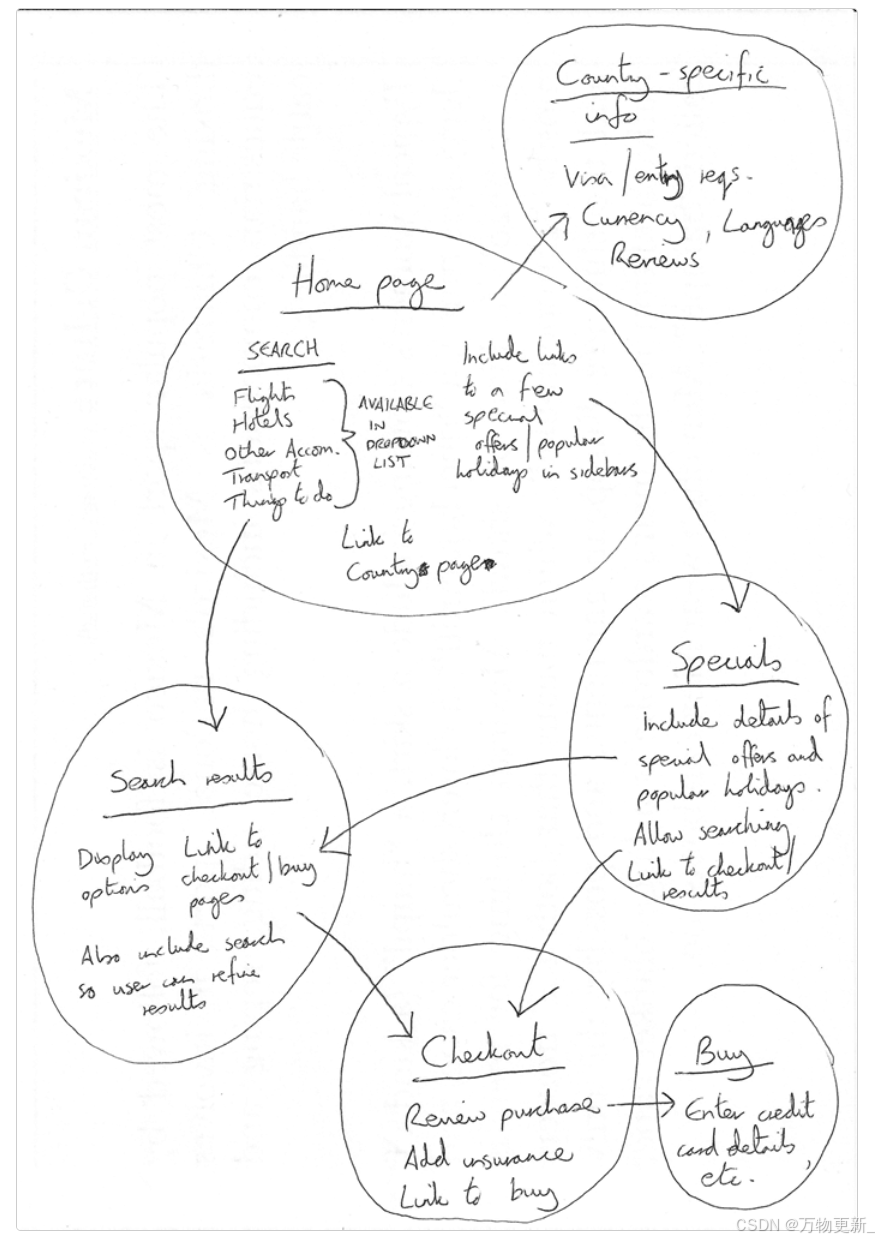 Country-specific
info
Visa/entry reqs.
Currency, Languages
Reviews
Home page
SEARCH
Flights
Hotels
Other Accom.
Transport
Things to do
AVAILABLE
IN
DROPDOWN
LIST
Include links
to a few
special
offers/popular
holidays in sidebars
Link to
Country page
Specials
Include details of
special offers and
popular holidays.
Allow searching
Link to checkout/
results
Search results
Display
options
Link to
checkout/buy
pages
Also include search
so user can refine
results
Checkout
Review purchase
Add insurance
Link to buy
Buy
Enter credit
card details,
etc.
CSDN @万物更新_